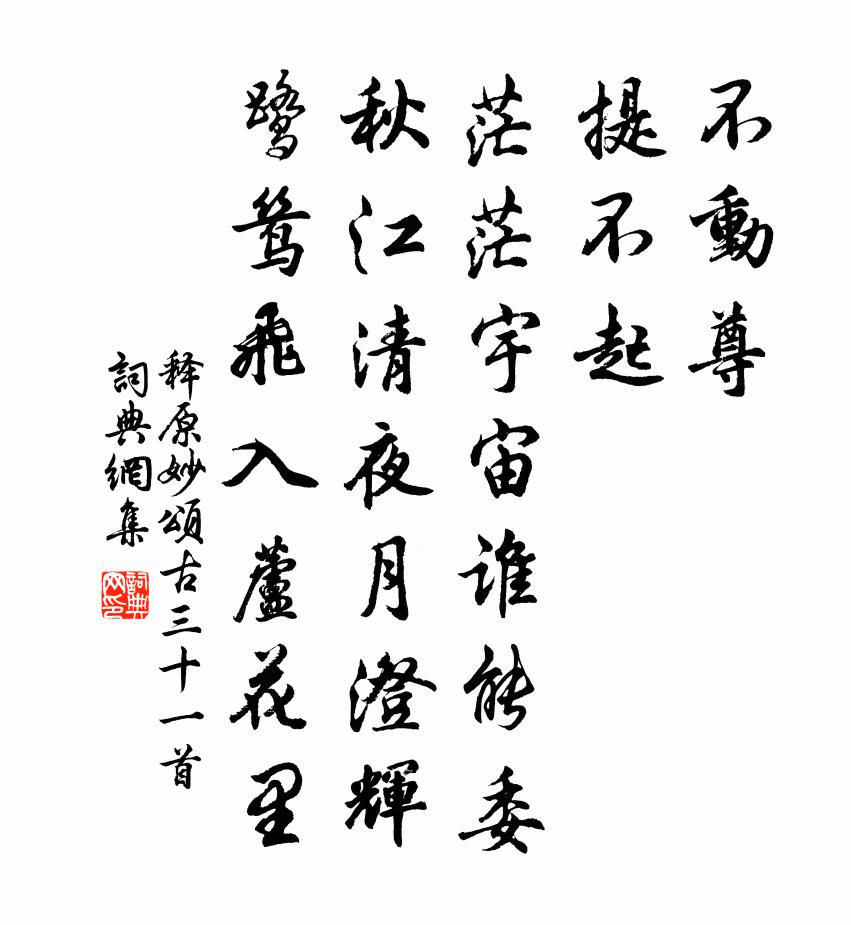 不動尊
提不起
茫茫宇宙誰能委
秋江清夜月澄輝
鹭鸶飛入蘆花里
释原妙頌古三十一首
詞典網集
詞典网印